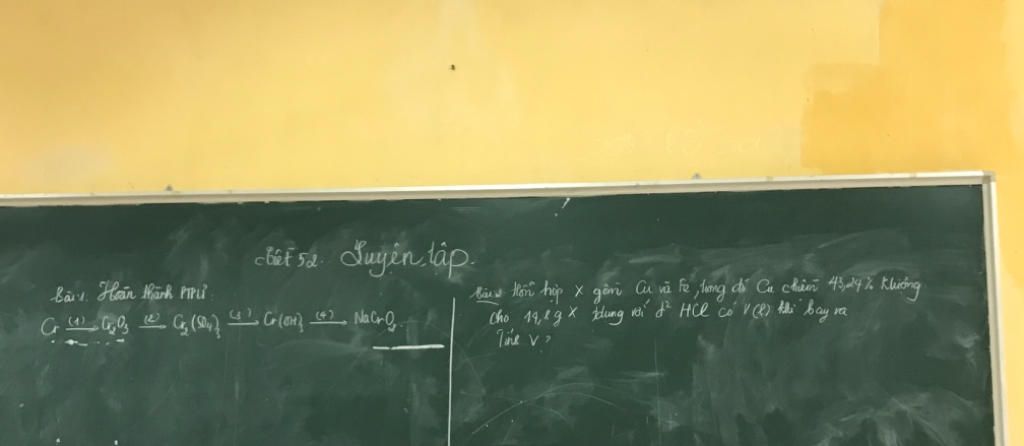 Tiết 52. Luyện tập.
Bài 1. Hoàn thành PTPƯ
Cr (1)→ Cr2O3 (2)→ Cr2(SO4)3 (3)→ Cr(OH)3 (4)→ NaCrO2
Bài 2 Hỗn hợp X gồm Cu và Fe, trong đó Cu chiếm 43,24% khlượng
Cho 14,8 g X tdụng với d² HCl có V(l) khí bay ra
Tính V?